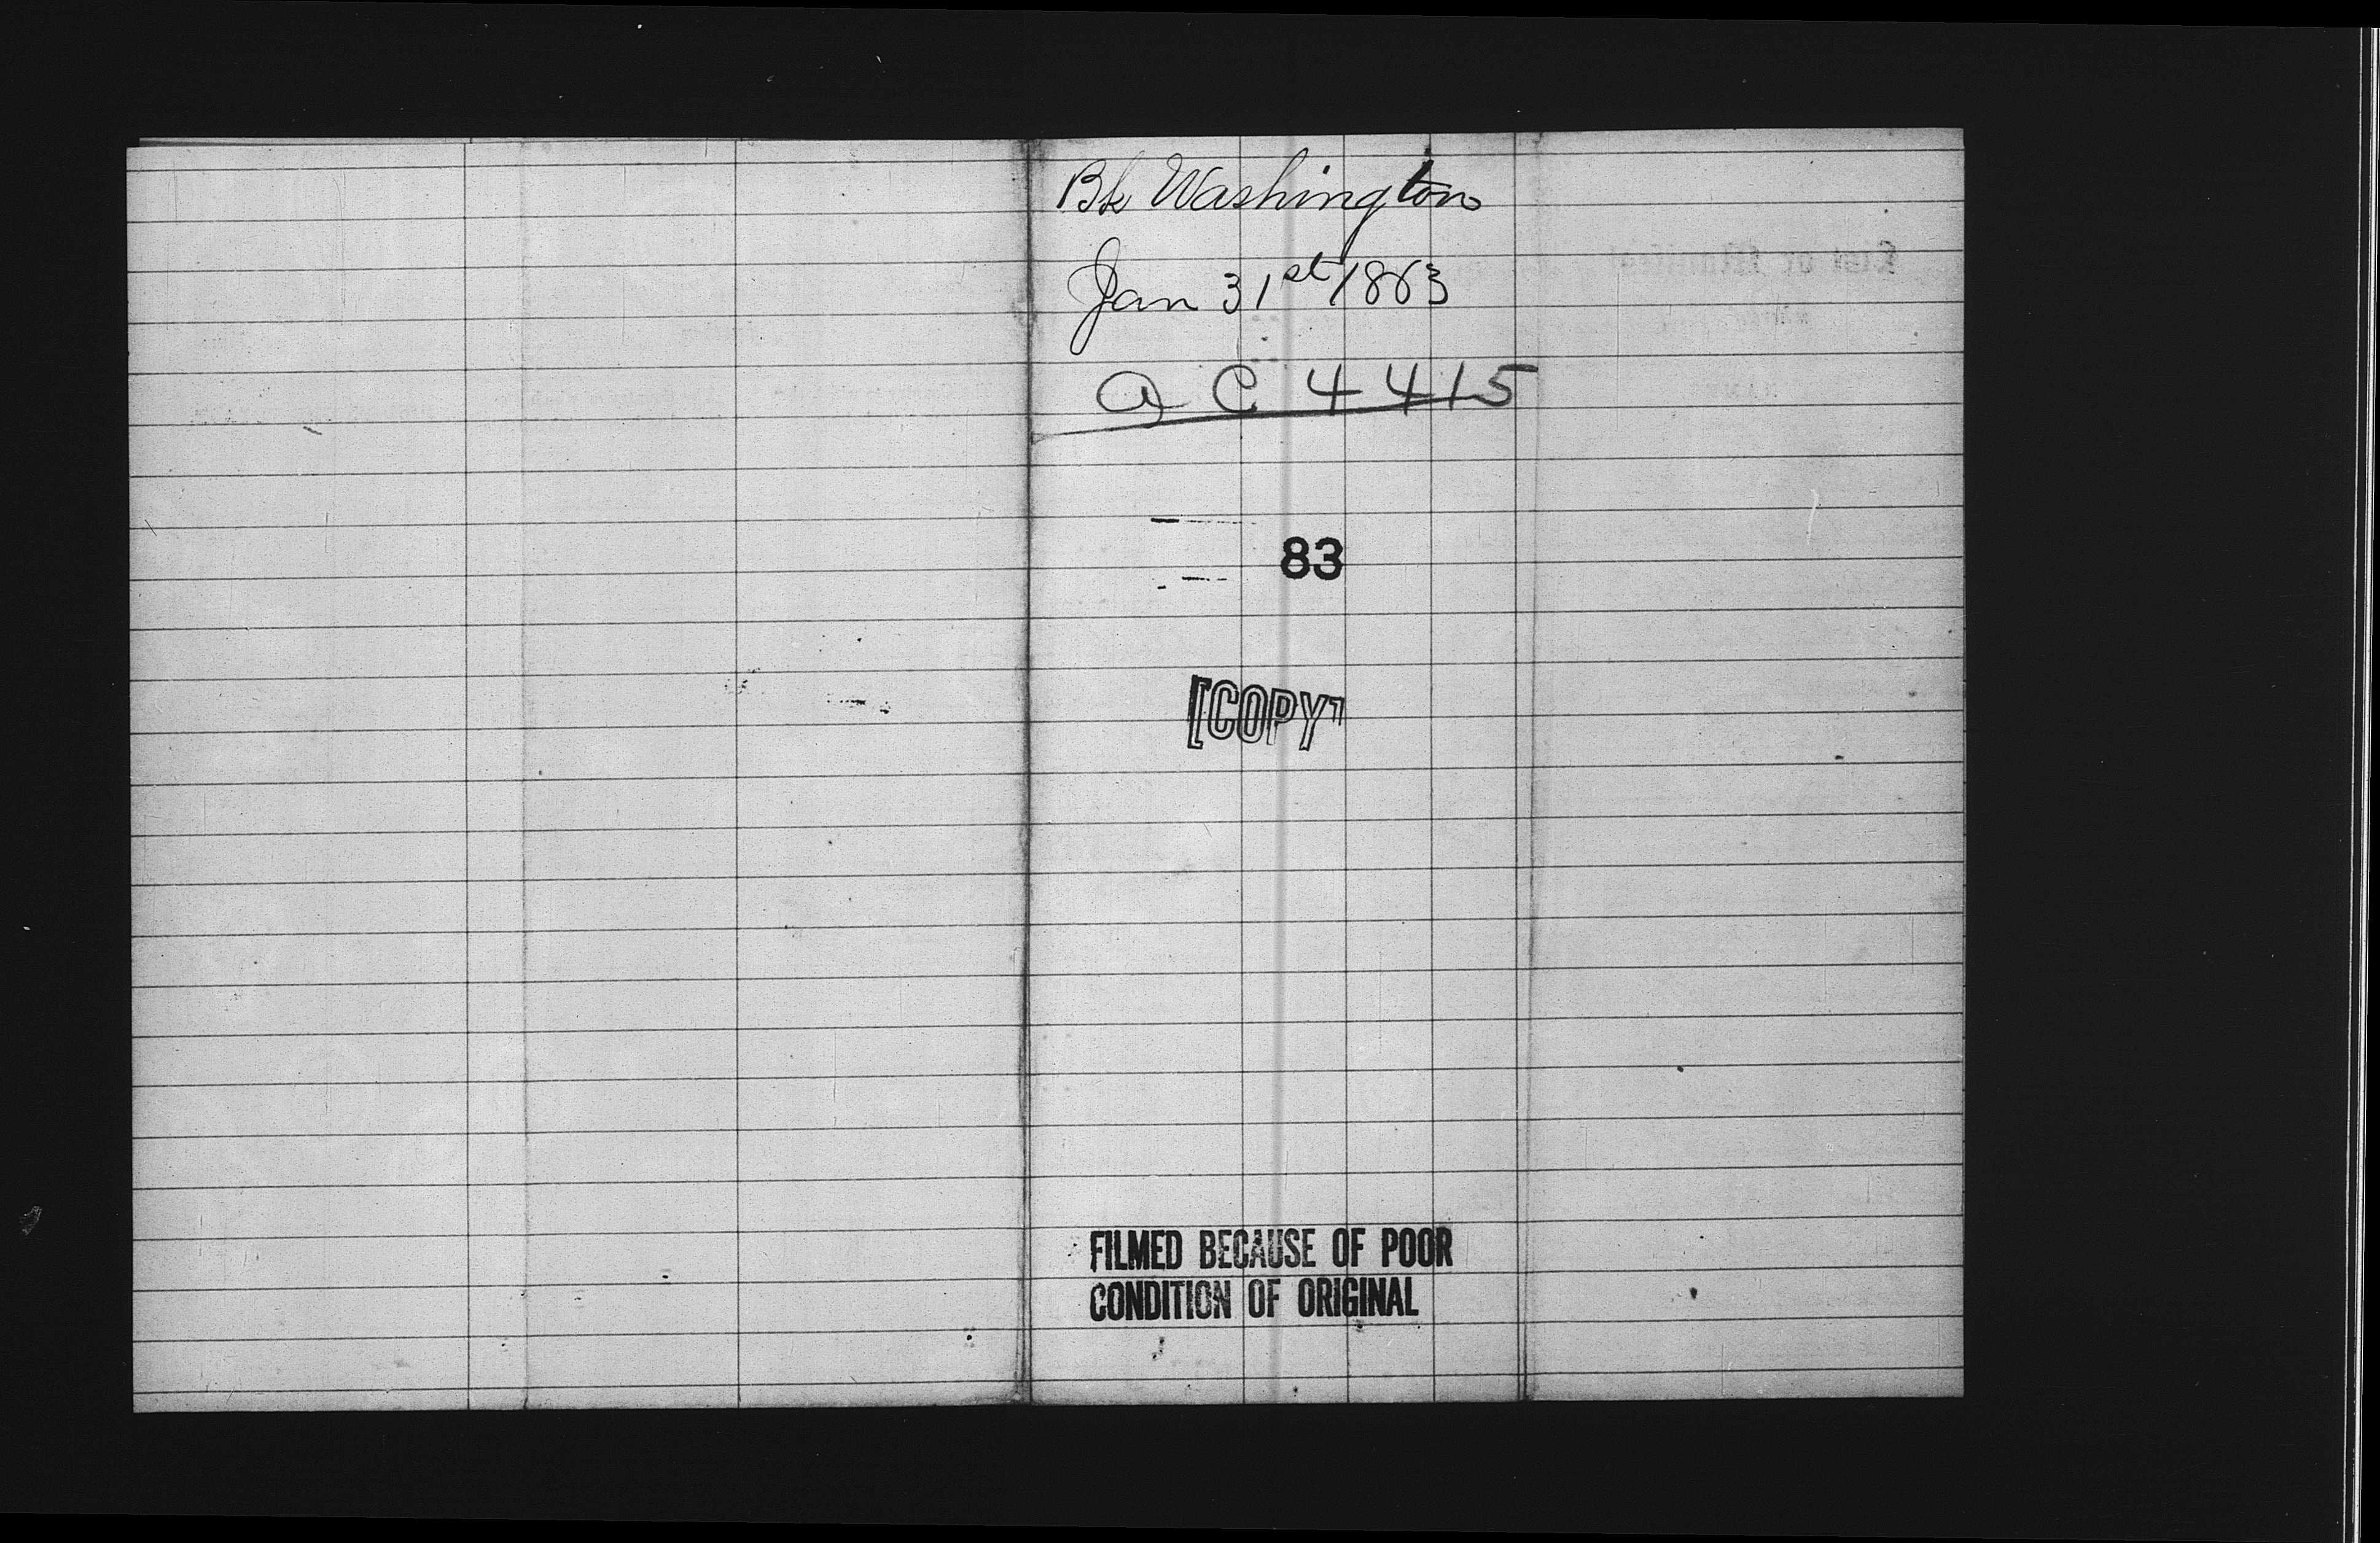 Bk Washington
Jan 31st 1863
a C 4415
83
[COPY]
FILMED BECAUSE OF POOR
CONDITION OF ORIGINAL